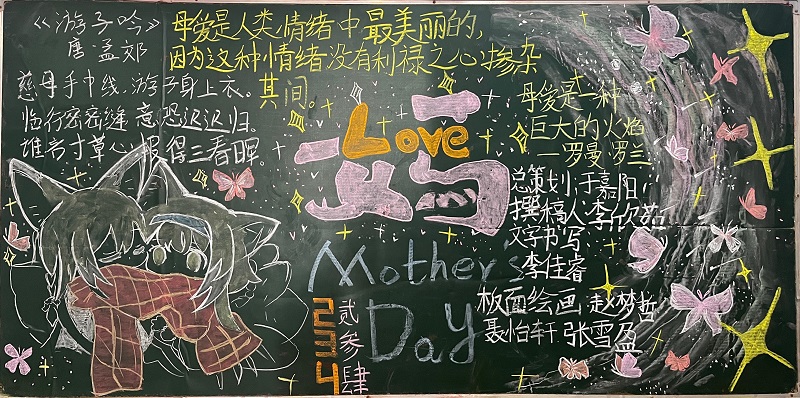 《游子吟》
唐·孟郊
慈母手中线，游子身上衣。
临行密密缝，意恐迟迟归。
谁言寸草心，报得三春晖。
母爱是人类情绪中最美丽的，
因为这种情绪没有利禄之心掺杂
其间。
母爱是一种
巨大的火焰
—罗曼·罗兰
妈
Love
Mother's
Day
234
贰叁肆
总策划：于嘉阳
撰稿人：李欣茹
文字书写
李佳睿
板面绘画：赵梦哲
聂怡轩 张雪盈